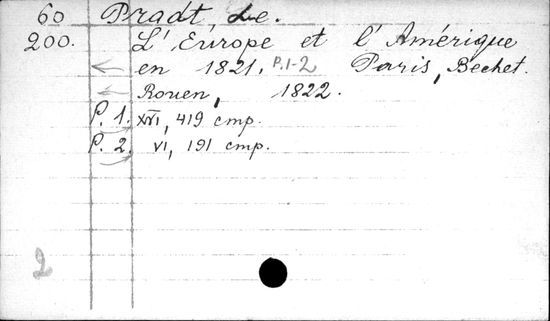 60 Pradt, De.
200. L'Europe et l'Amérique
en 1821. P.1-2 Paris, Bechet.
Rouen, 1822.
P. 1. XVI, 419 cmp.
P. 2. VI, 191 cmp.
2